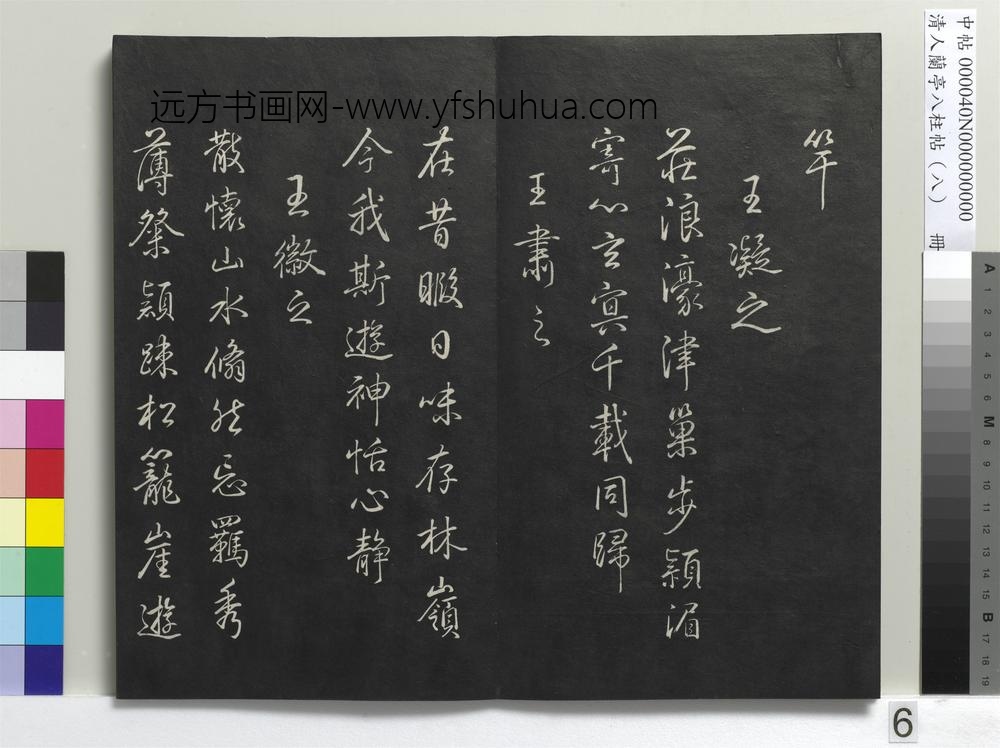 远方书画网-www.yfshuhua.com
竿
王凝之
莊浪濠津巢步頴湄
寄心玄冥千載同歸
王肅之
在昔暇日味存林嶺
今我斯遊神恬心静
王徽之
散懷山水翛然忘羈秀
薄粲頴踈松籠崖遊
中帖 000040N000000000
清人蘭亭八柱帖（八） 冊
A 1 2 3 4 5 6 M 8 9 10 11 12 13 14 15 B 17 18 19
6